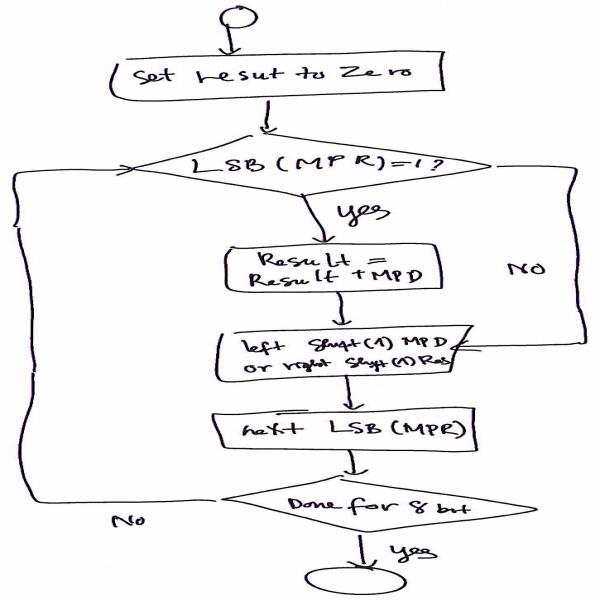 Set resut to Zero
LSB (MPR)=1?
yes
Result =
Result + MPD
NO
left Shift(1) MPD
or right Shift(1) Res
next LSB (MPR)
Done for 8 bit
No
yes